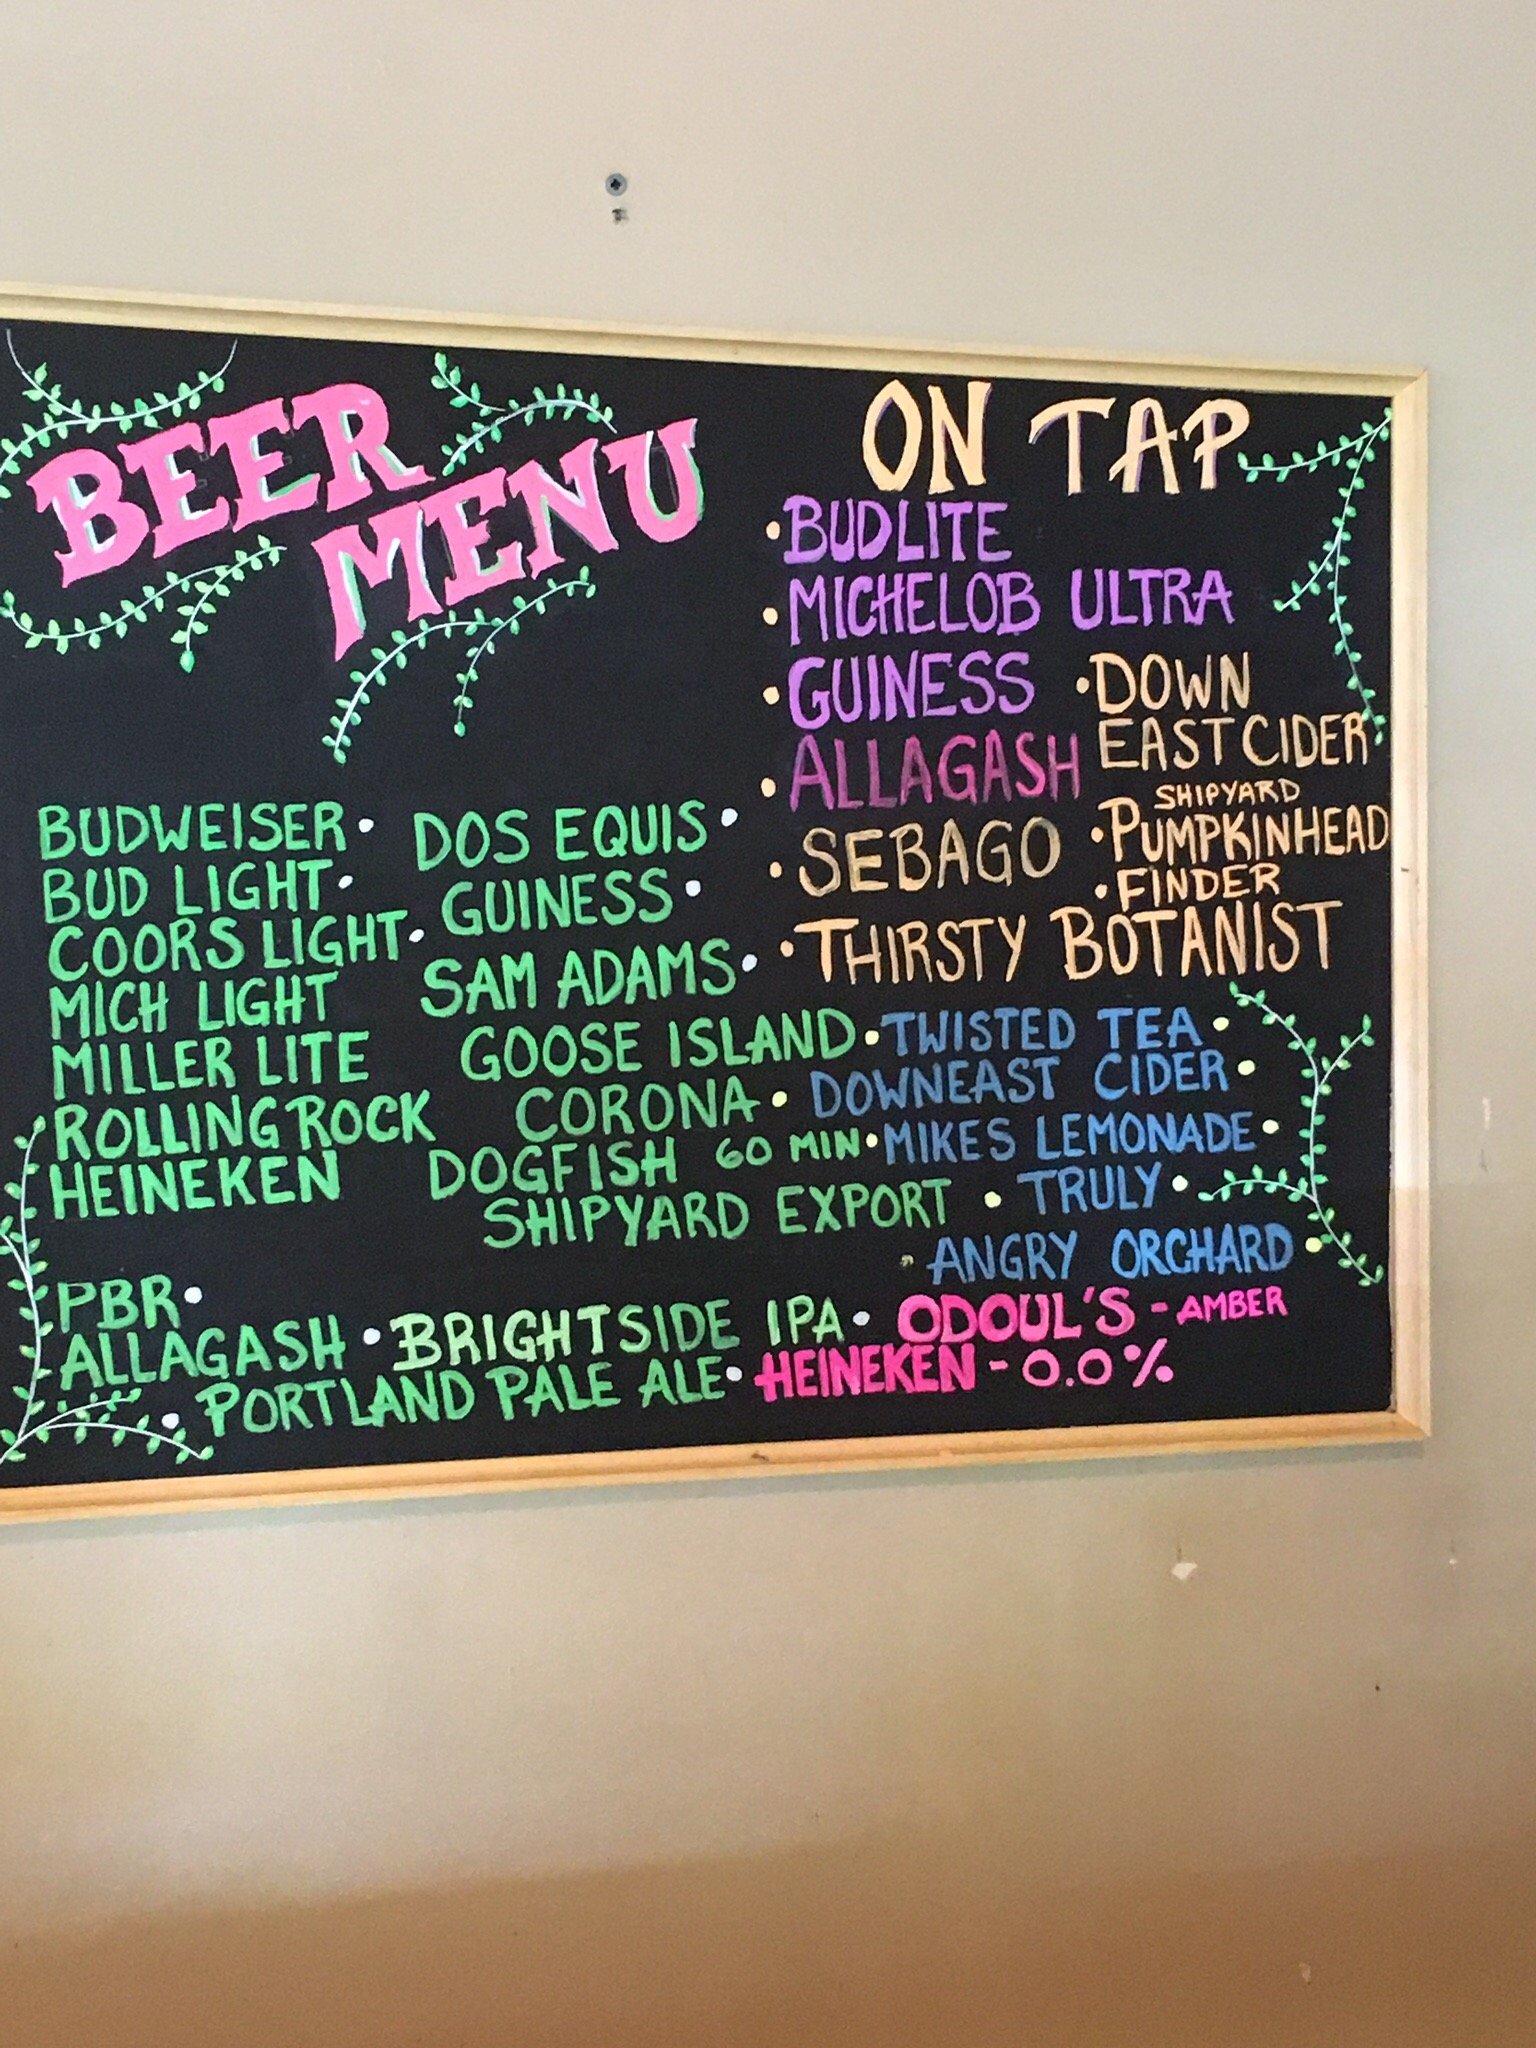 BEER
MENU
BUDWEISER
BUD LIGHT
COORS LIGHT
MICH LIGHT
MILLER LITE
ROLLING ROCK
HEINEKEN
PBR
ALLAGASH
DOS EQUIS
GUINESS
SAM ADAMS
GOOSE ISLAND
CORONA
DOGFISH 60 MIN
SHIPYARD EXPORT
BRIGHTSIDE IPA
PORTLAND PALE ALE
ON TAP
BUDLITE
MICHELOB ULTRA
GUINESS
ALLAGASH
SEBAGO
THIRSTY BOTANIST
DOWN
EAST CIDER
SHIPYARD
PUMPKINHEAD
FINDER
TWISTED TEA
DOWNEAST CIDER
MIKES LEMONADE
TRULY
ANGRY ORCHARD
ODOUL'S - AMBER
HEINEKEN - 0.0%